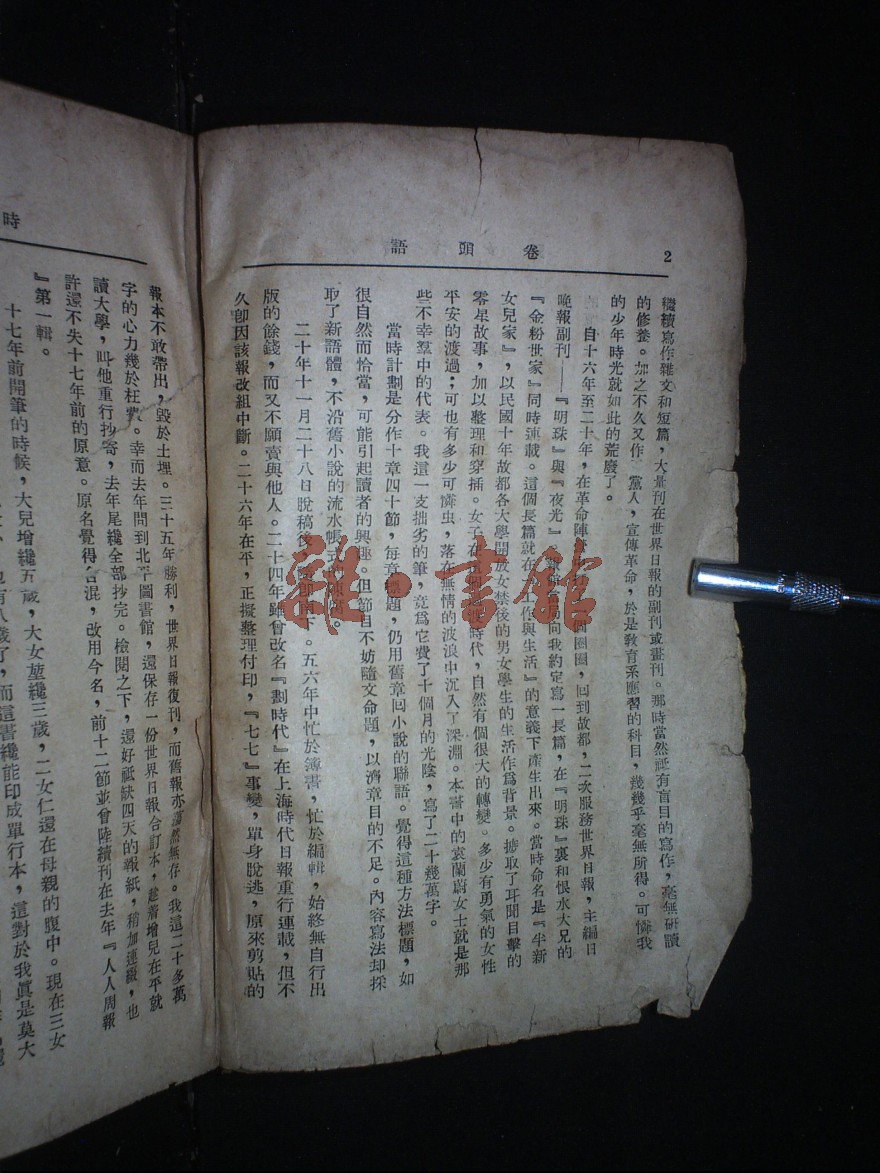 2
卷頭語
繼續寫作雜文和短篇，大量刊在世界日報的副刊或畫刊。那時當然祇有盲目的寫作，毫無研讀
的修養。加之不久又作 黨人，宣傳革命，於是敎育系應習的科目，幾幾乎毫無所得。可憐我
的少年時光就如此的荒廢了。
自十六年至二十年，在革命陣 個圈圈，回到故都，二次服務世界日報，主編日
晚報副刊——『明珠』與『夜光』。報館 向我約定寫一長篇，在『明珠』裏和恨水大兄的
『金粉世家』同時連載。這個長篇就在 作與生活』的意義下產生出來。當時命名是『半新
女兒家』，以民國十年故都各大學開放女禁後的男女學生的生活作爲背景。摭取了耳聞目擊的
零星故事，加以整理和穿插。女子在 時代，自然有個很大的轉變。多少有勇氣的女性
平安的渡過；可也有多少可憐虫，落在無情的波浪中沉入了深淵。本書中的袁蘭蔚女士就是那
些不幸羣中的代表。我這一支拙劣的筆，竟爲它費了十個月的光陰，寫了二十幾萬字。
當時計劃是分作十章四十節，每章標題，仍用舊章回小說的聯語。覺得這種方法標題，如
很自然而恰當，可能引起讀者的興趣。但節目不妨隨文命題，以濟章目的不足。內容寫法却採
取了新語體，不沿舊小說的流水帳式 。
二十年十一月二十八日脫稿後， 下。五六年中忙於簿書，忙於編輯，始終無自行出
版的餘錢，而又不願賣與他人。二十四年雖曾改名『劃時代』在上海時代日報重行連載，但不
久卽因該報改組中斷。二十六年在平，正擬整理付印，『七七』事變，單身脫逃，原來剪貼的
時
報本不敢帶出，毀於土埋。三十五年勝利，世界日報復刊，而舊報亦蕩然無存。我這二十多萬
字的心力幾於枉費。幸而去年問到北平圖書館，還保存一份世界日報合訂本，趁着增兒在平就
讀大學，叫他重行抄寄，去年尾纔全部抄完。檢閱之下，還好祗缺四天的報紙，稍加連綴，也
許還不失十七年前的原意。原名覺得含混，改用今名，前十二節並曾陸續刊在去年『人人周報
』第一輯。
十七年前開筆的時候，大兒增纔五歲，大女堃纔三歲，二女仁還在母親的腹中。現在三女
也有八歲了，而這書纔能印成單行本，這對於我眞是莫大
雜·書館